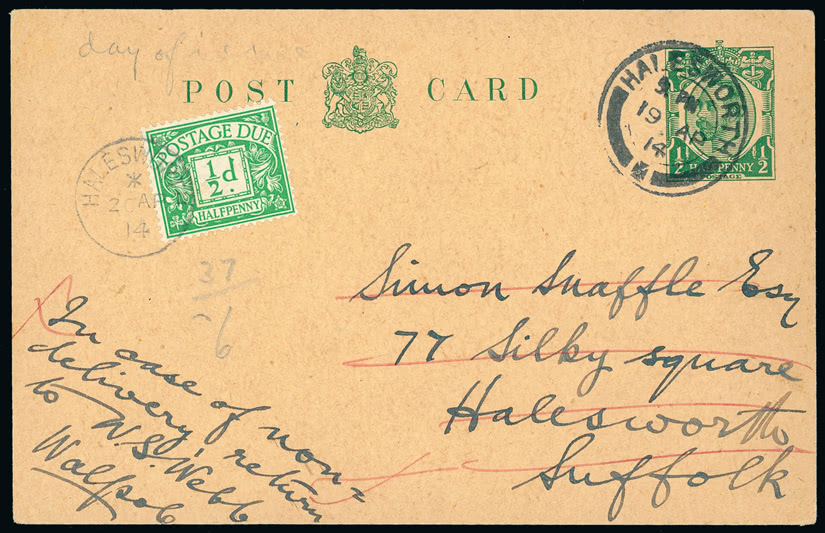 day of issue
POST CARD
HALESWORTH
5 PM
19 AP
14
1/2 HALFPENNY 1/2
POSTAGE
POSTAGE DUE
1/2 d.
HALFPENNY
HALESW
20 AP
14
37
6
Simon Snaffle Esq
77 Silky square
Halesworth
Suffolk
In case of non=
delivery, return
to W.S. Webb
Walpole